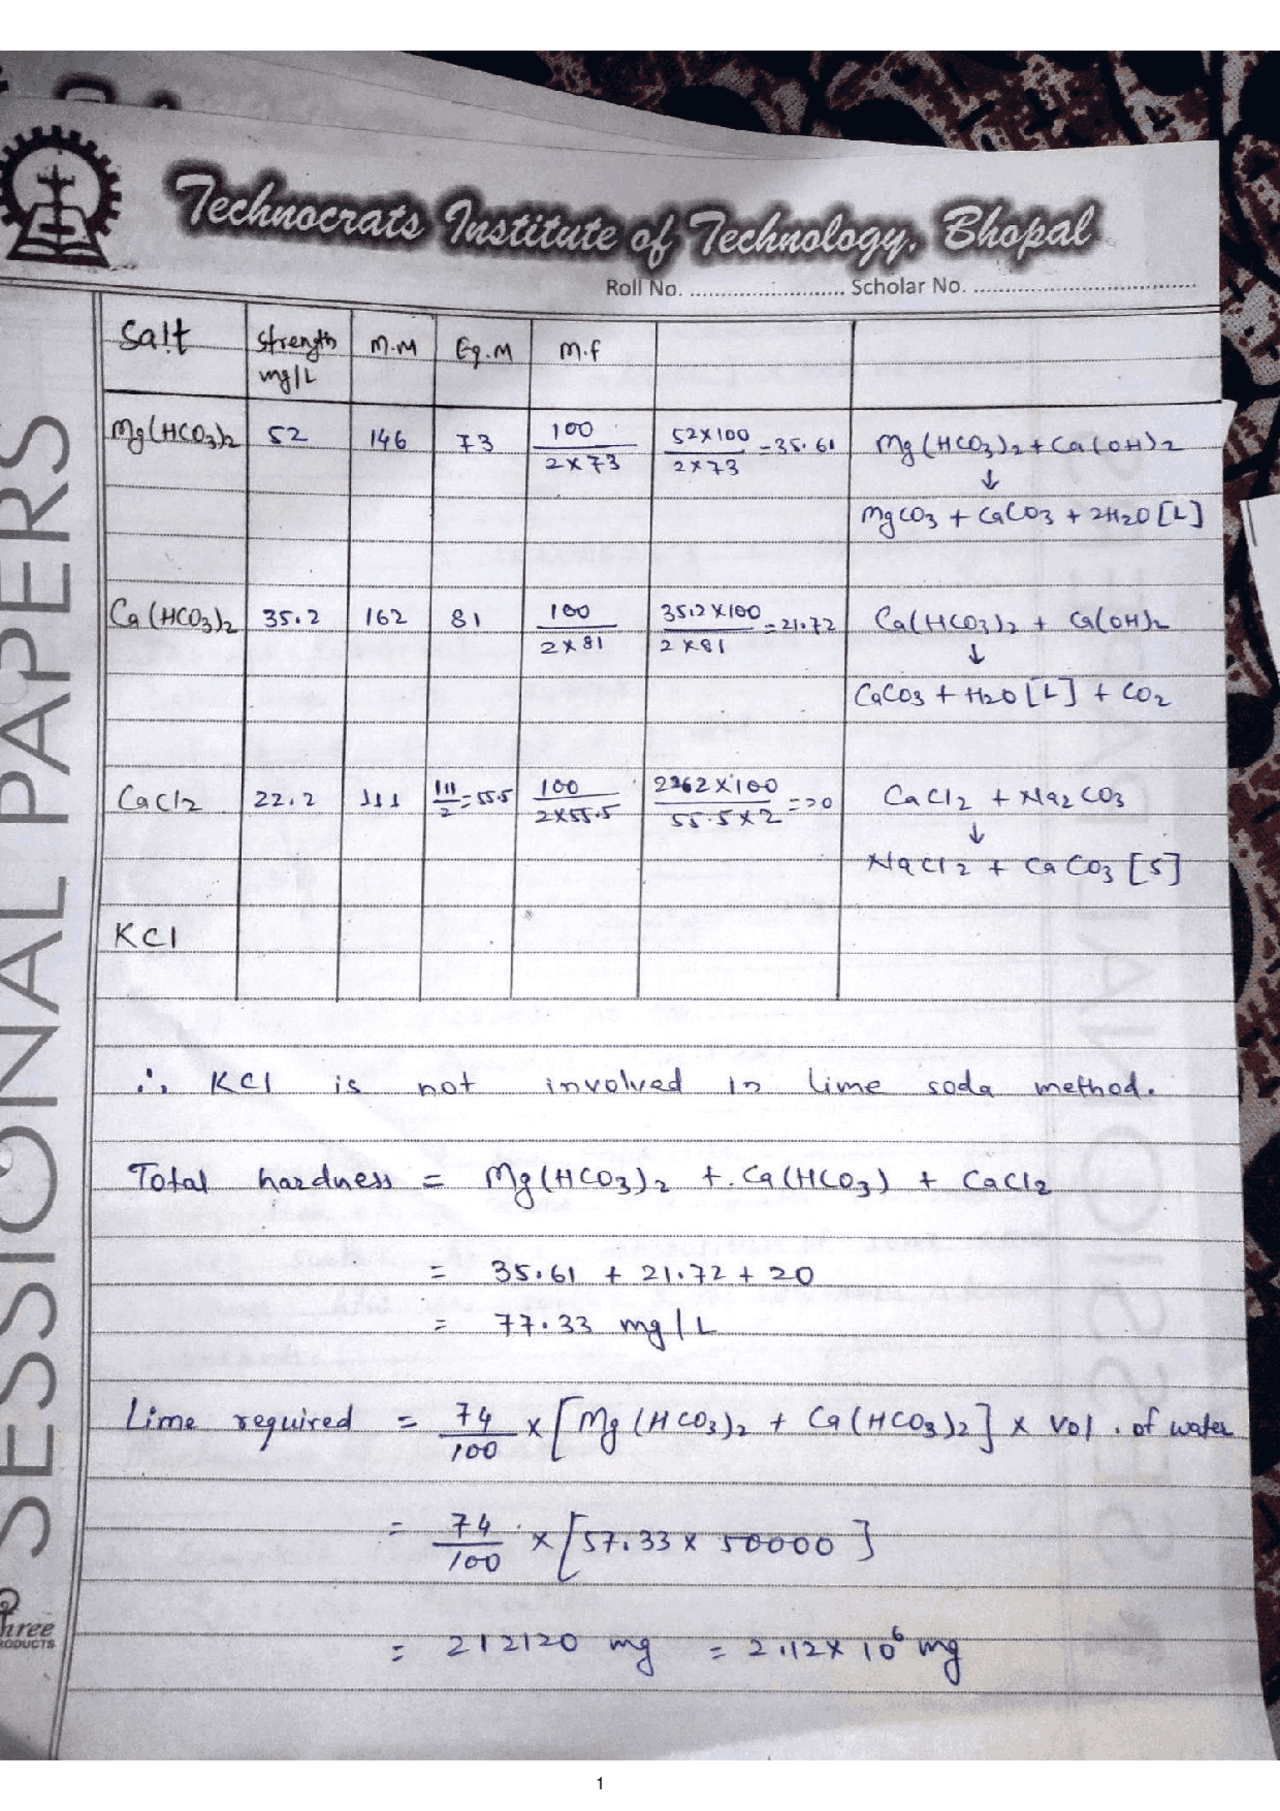 Technocrats Institute of Technology, Bhopal
Roll No. .......................... Scholar No. ....................................
SESSIONAL PAPERS
Salt | Strength mg/L | M.M | Eq.M | M.f
Mg(HCO3)2 | 52 | 146 | 73 | 100/2×73 | 52×100/2×73 = 35.61 | Mg(HCO3)2 + Ca(OH)2
↓
MgCO3 + CaCO3 + 2H2O [L]
Ca(HCO3)2 | 35.2 | 162 | 81 | 100/2×81 | 35.2×100/2×81 = 21.72 | Ca(HCO3)2 + Ca(OH)2
↓
CaCO3 + H2O [L] + CO2
CaCl2 | 22.2 | 111 | 111/2 = 55.5 | 100/2×55.5 | ×100/55.5×2 = 20 | CaCl2 + Na2CO3
↓
NaCl2 + CaCO3 [S]
KCl
∴ KCl is not involved in lime soda method.
Total hardness = Mg(HCO3)2 + Ca(HCO3) + CaCl2
= 35.61 + 21.72 + 20
= 77.33 mg/L
Lime required = 74/100 × [Mg(HCO3)2 + Ca(HCO3)2] × Vol. of water
= 74/100 × [57.33 × 50000]
= 212120 mg = 2.12×10⁶ mg
PRODUCTS
1